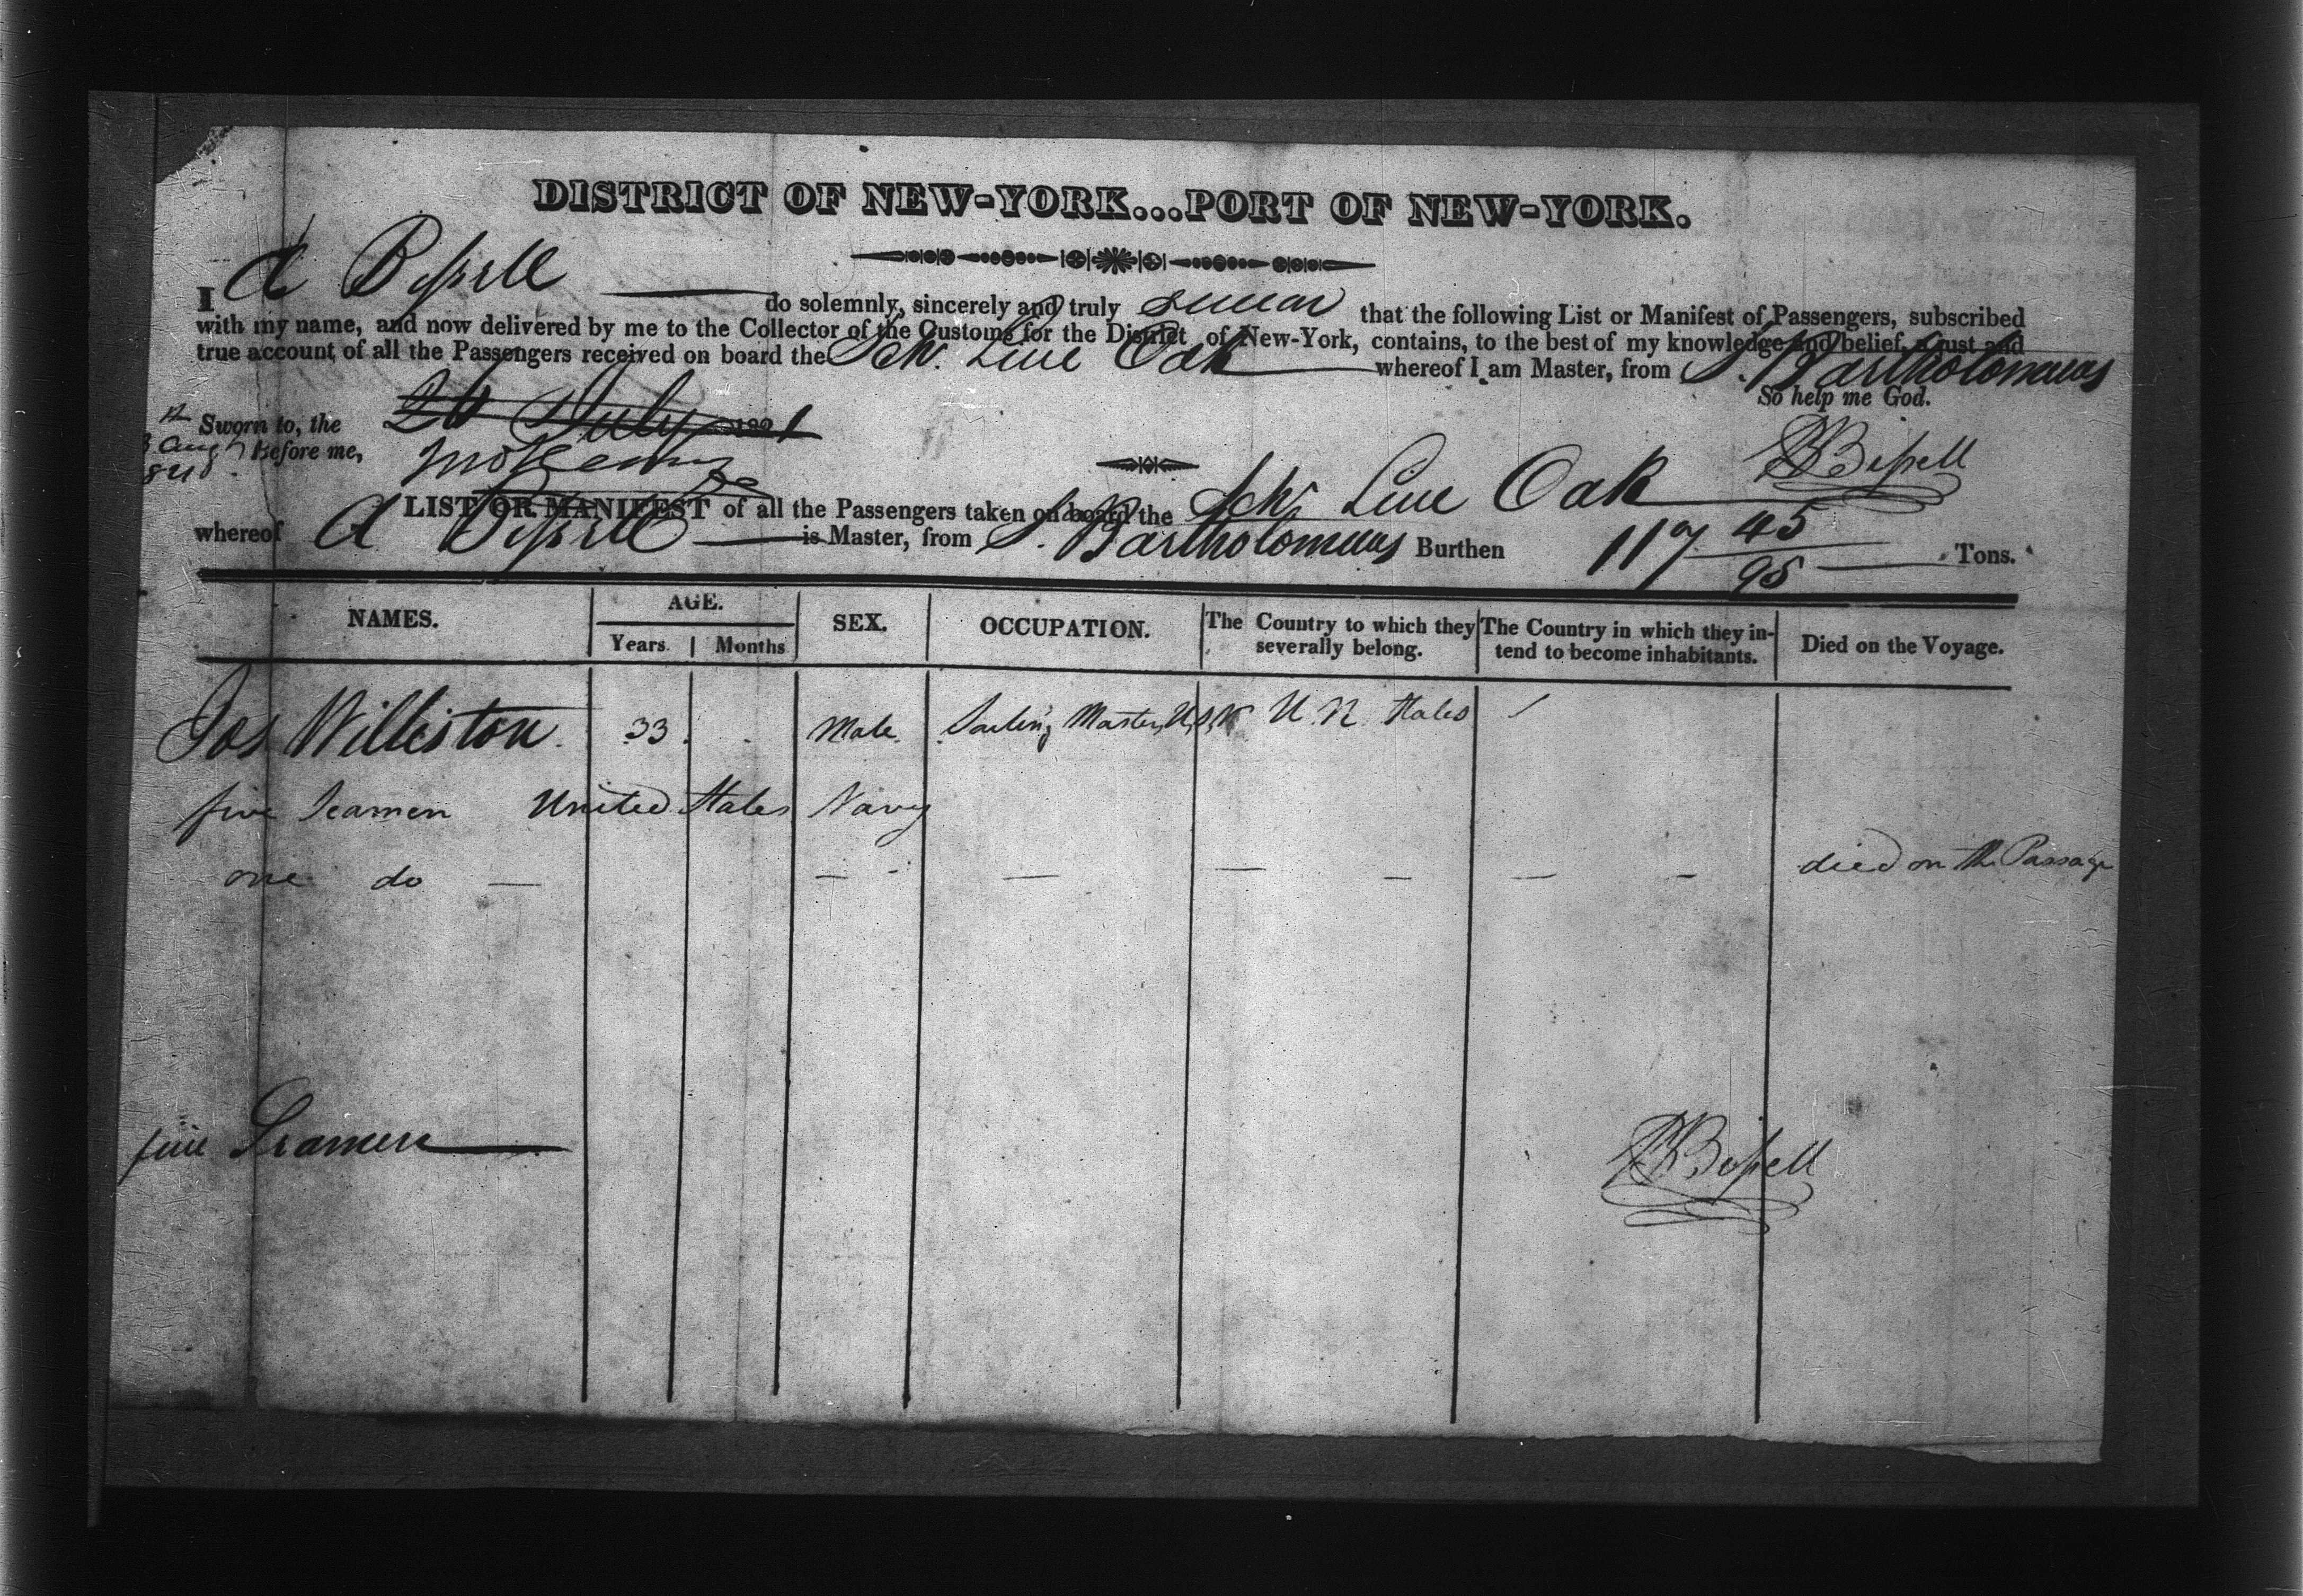 DISTRICT OF NEW-YORK...PORT OF NEW-YORK.
I A Bissell do solemnly, sincerely and truly swear that the following List or Manifest of Passengers, subscribed
with my name, and now delivered by me to the Collector of the Customs for the District of New-York, contains, to the best of my knowledge and belief, a just and
true account of all the Passengers received on board the Sch. Live Oak whereof I am Master, from S. Bartholomews
So help me God.
Sworn to, the 26 July 1821
Aug
Before me,
A Bissell
LIST OR MANIFEST of all the Passengers taken on board the Schr Live Oak
whereof A Bissell is Master, from S. Bartholomews Burthen 117 45/95 Tons.
NAMES. AGE. SEX. OCCUPATION. The Country to which they severally belong. The Country in which they intend to become inhabitants. Died on the Voyage.
Years. Months
Jos Williston 33 Male Sailing Master, U.S.N U. States
five Seamen United States Navy
one do — — — — — — — died on the Passage
five Seamen
A Bissell